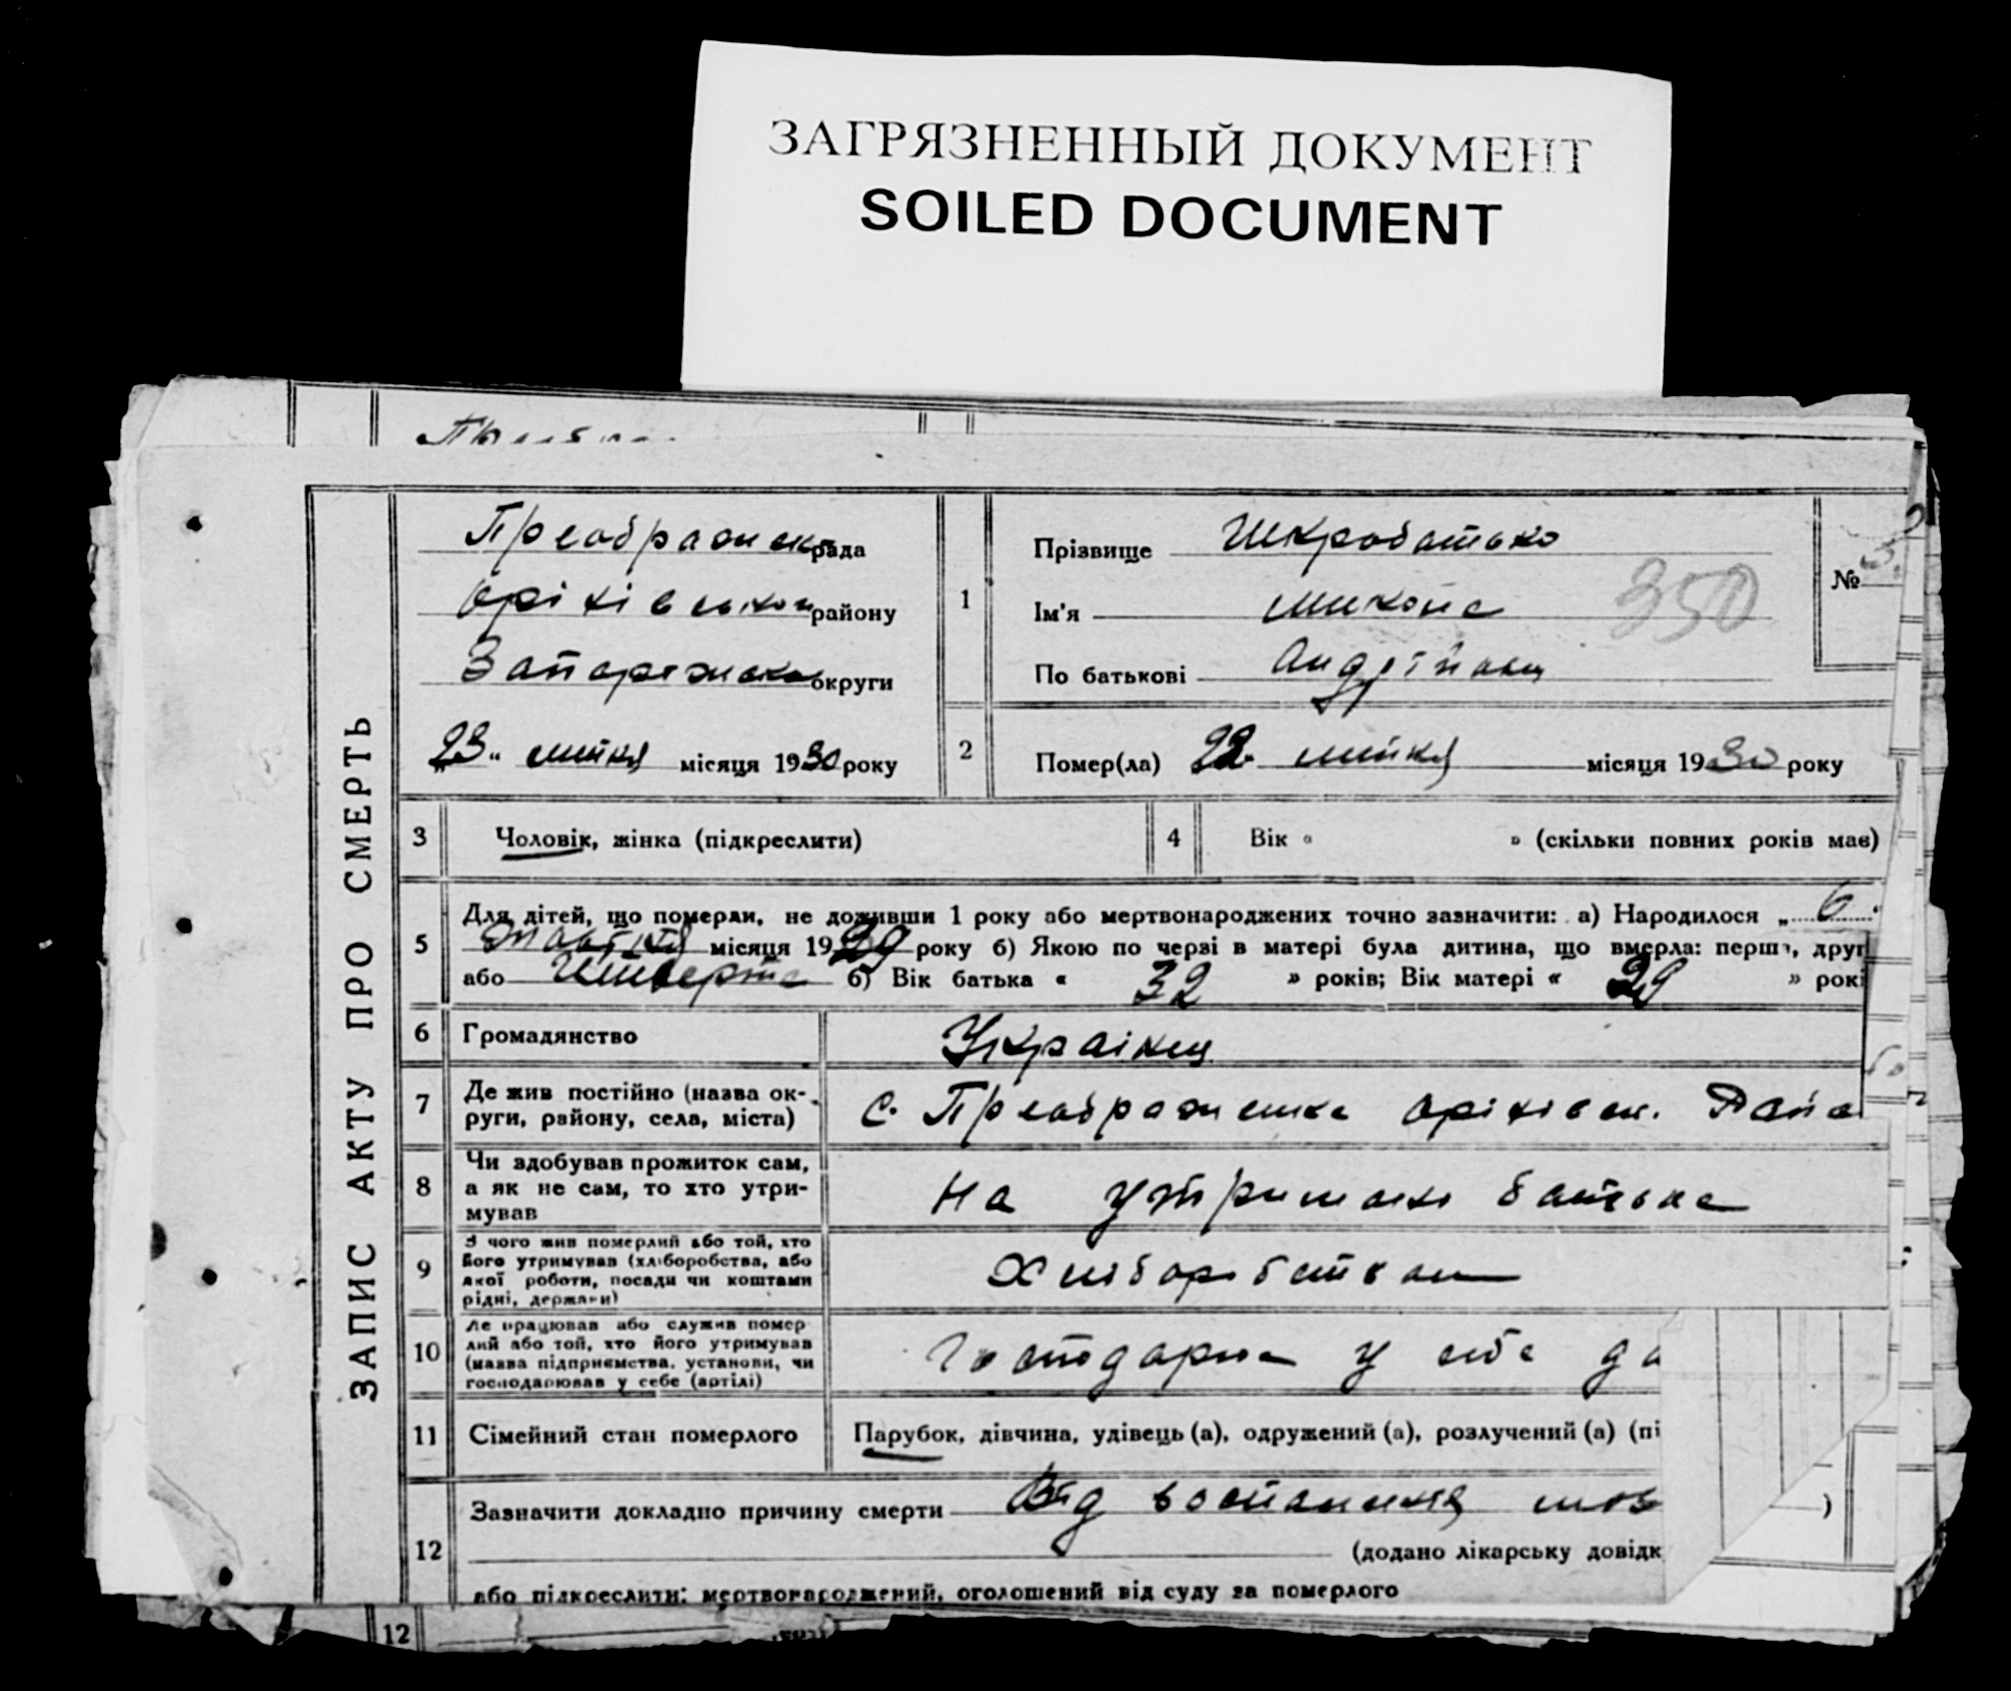 ЗАГРЯЗНЕННЫЙ ДОКУМЕНТ
SOILED DOCUMENT
ЗАПИС АКТУ ПРО СМЕРТЬ
Преображенск рада
Оріхівськог району
Запоріжської округи
„23“ липня місяця 1930 року
1
Прізвище Шкробатько
Ім'я Микола
По батькові Андрійович
350
№
2
Помер(ла) 22 липня місяця 1930 року
3 Чоловік, жінка (підкреслити)
4 Вік « » (скільки повних років має)
5 Для дітей, що померли, не доживши 1 року або мертвонароджених точно зазначити: а) Народилося „ 6 “
жовтня місяця 1929 року б) Якою по черзі в матері була дитина, що вмерла: перша, друг
або четверта б) Вік батька « 32 » років; Вік матері « 29 » рокі
6 Громадянство Українец
7 Де жив постійно (назва ок-
руги, району, села, міста) с. Преображенка Оріхівськ. Район
8 Чи здобував прожиток сам,
а як не сам, то хто утри-
мував На утриманні батька
9 З чого жив померлий або той, хто
його утримував (хліборобства, або
якої роботи, посади чи коштами
рідні, держави) Хліборобством
10 Де працював або служив помер
лий або той, хто його утримував
(назва підприємства, установи, чи
господарював у себе (артілі) Господарює у себе до
11 Сімейний стан померлого Парубок, дівчина, удівець (а), одружений (а), розлучений (а) (пі
12 Зазначити докладно причину смерти Від воспалення моз
(додано лікарську довідк
або підкреслити: мертвонароджений, оголошений від суду за померлого
12